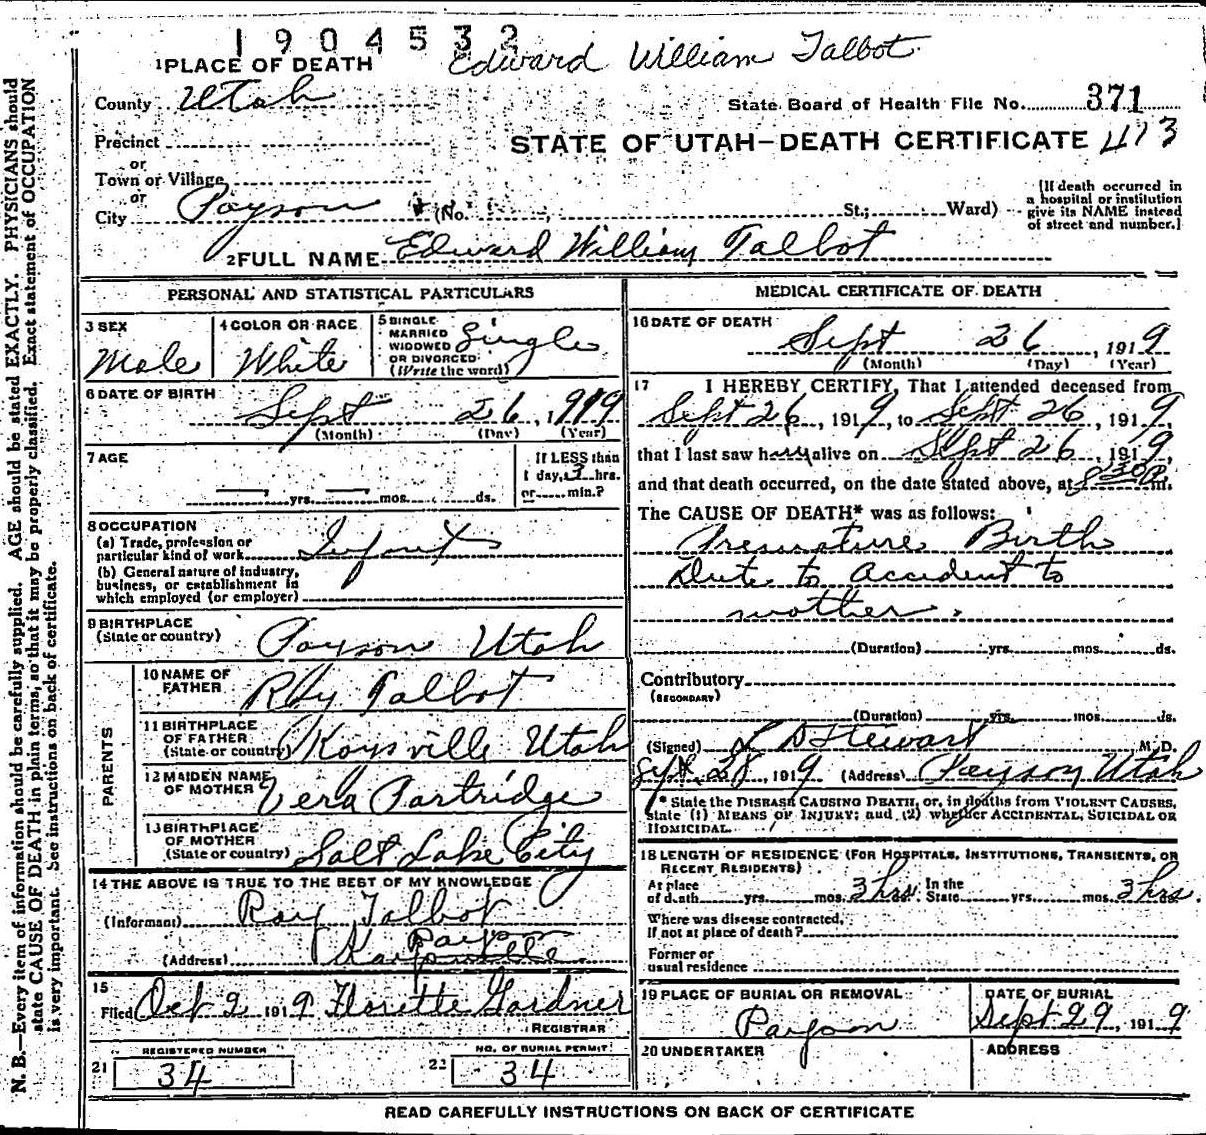 1904532
Edward William Talbot
1 PLACE OF DEATH
County Utah
State Board of Health File No. 371
Precinct
STATE OF UTAH—DEATH CERTIFICATE 413
or
Town or Village
or
City Payson (No. St.; Ward)
(If death occurred in a hospital or institution give its NAME instead of street and number.)
2 FULL NAME Edward William Talbot
PERSONAL AND STATISTICAL PARTICULARS
3 SEX
Male
4 COLOR OR RACE
White
5 SINGLE
MARRIED
WIDOWED
OR DIVORCED
(Write the word)
Single
6 DATE OF BIRTH
Sept 26, 1919
(Month) (Day) (Year)
7 AGE
yrs. mos. ds.
If LESS than
1 day, 3 hrs.
or min.?
8 OCCUPATION
(a) Trade, profession or
particular kind of work Infant
(b) General nature of industry,
business, or establishment in
which employed (or employer)
9 BIRTHPLACE
(State or country) Payson Utah
PARENTS
10 NAME OF
FATHER Ray Talbot
11 BIRTHPLACE
OF FATHER
(State or country) Kaysville Utah
12 MAIDEN NAME
OF MOTHER Vera Partridge
13 BIRTHPLACE
OF MOTHER
(State or country) Salt Lake City
14 THE ABOVE IS TRUE TO THE BEST OF MY KNOWLEDGE
(Informant) Ray Talbot
Payson
(Address) Kaysville
15
Filed Oct 2 1919 Florette Gardner
REGISTRAR
21 REGISTERED NUMBER
34
22 NO. OF BURIAL PERMIT
34
MEDICAL CERTIFICATE OF DEATH
16 DATE OF DEATH
Sept 26, 1919
(Month) (Day) (Year)
17 I HEREBY CERTIFY, That I attended deceased from
Sept 26, 1919, to Sept 26, 1919,
that I last saw him alive on Sept 26, 1919,
and that death occurred, on the date stated above, at 230P m.
The CAUSE OF DEATH* was as follows:
Premature Birth
Due to accident to
mother.
(Duration) yrs. mos. ds.
Contributory
(SECONDARY)
(Duration) yrs. mos. ds.
(Signed) L D Stewart M. D.
Sept. 28, 1919 (Address) Payson Utah
* State the DISEASE CAUSING DEATH, or, in deaths from VIOLENT CAUSES,
state (1) MEANS OF INJURY; and (2) whether ACCIDENTAL, SUICIDAL OR
HOMICIDAL.
18 LENGTH OF RESIDENCE (FOR HOSPITALS, INSTITUTIONS, TRANSIENTS, OR
RECENT RESIDENTS)
At place
of death yrs. mos. 3 hrs. In the
State yrs. mos. 3 hrs.
Where was disease contracted,
If not at place of death?
Former or
usual residence
19 PLACE OF BURIAL OR REMOVAL
Payson
DATE OF BURIAL
Sept 29, 1919
20 UNDERTAKER
ADDRESS
READ CAREFULLY INSTRUCTIONS ON BACK OF CERTIFICATE
N. B.—Every item of information should be carefully supplied. AGE should be stated EXACTLY. PHYSICIANS should
state CAUSE OF DEATH in plain terms, so that it may be properly classified. Exact statement of OCCUPATION
is very important. See instructions on back of certificate.